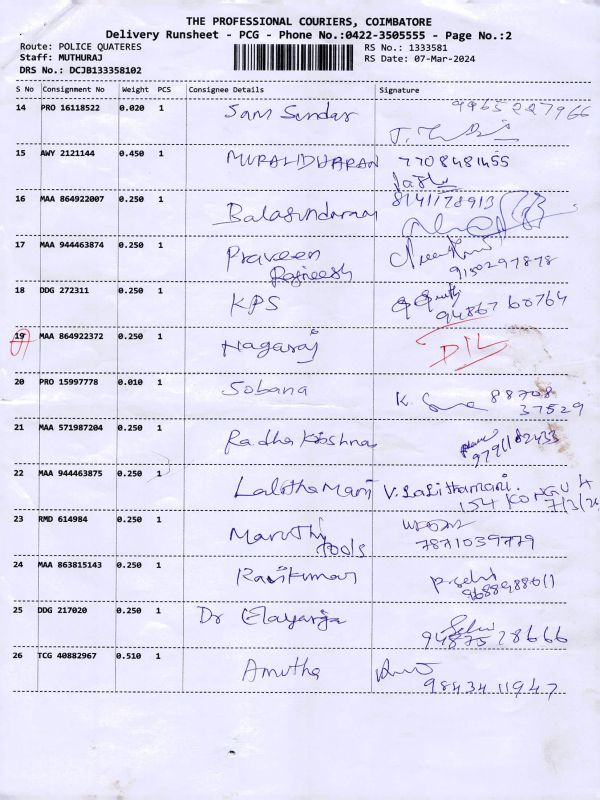 THE PROFESSIONAL COURIERS, COIMBATORE
Delivery Runsheet - PCG - Phone No.:0422-3505555 - Page No.:2
Route: POLICE QUATERES RS No.: 1333581
Staff: MUTHURAJ RS Date: 07-Mar-2024
DRS No.: DCJB133358102
S No Consignment No Weight PCS Consignee Details Signature
14 PRO 16118522 0.020 1 Sam Sundar 9965227966
15 AWY 2121144 0.450 1 MURALIDHARAN 7708481455
16 MAA 864922007 0.250 1 Balasundaram 8141178913
17 MAA 944463874 0.250 1 Praveen
Rajneesh 9150297878
18 DDG 272311 0.250 1 KPS 94867 60764
19 MAA 864922372 0.250 1 Nagaraj DIL
20 PRO 15997778 0.010 1 Sobana K. 88708
37529
21 MAA 571987204 0.250 1 Radha Krishna 9791182433
22 MAA 944463875 0.250 1 Lalitha Mani V. Lalithamani.
154 KONGU
7/3/24
23 RMD 614984 0.250 1 Maruthi
Tools 7871039779
24 MAA 863815143 0.250 1 Ravikumar 9688988011
25 DDG 217020 0.250 1 Dr Elayaraja
94875 28666
26 TCG 40882967 0.510 1 Amutha
98434 11947